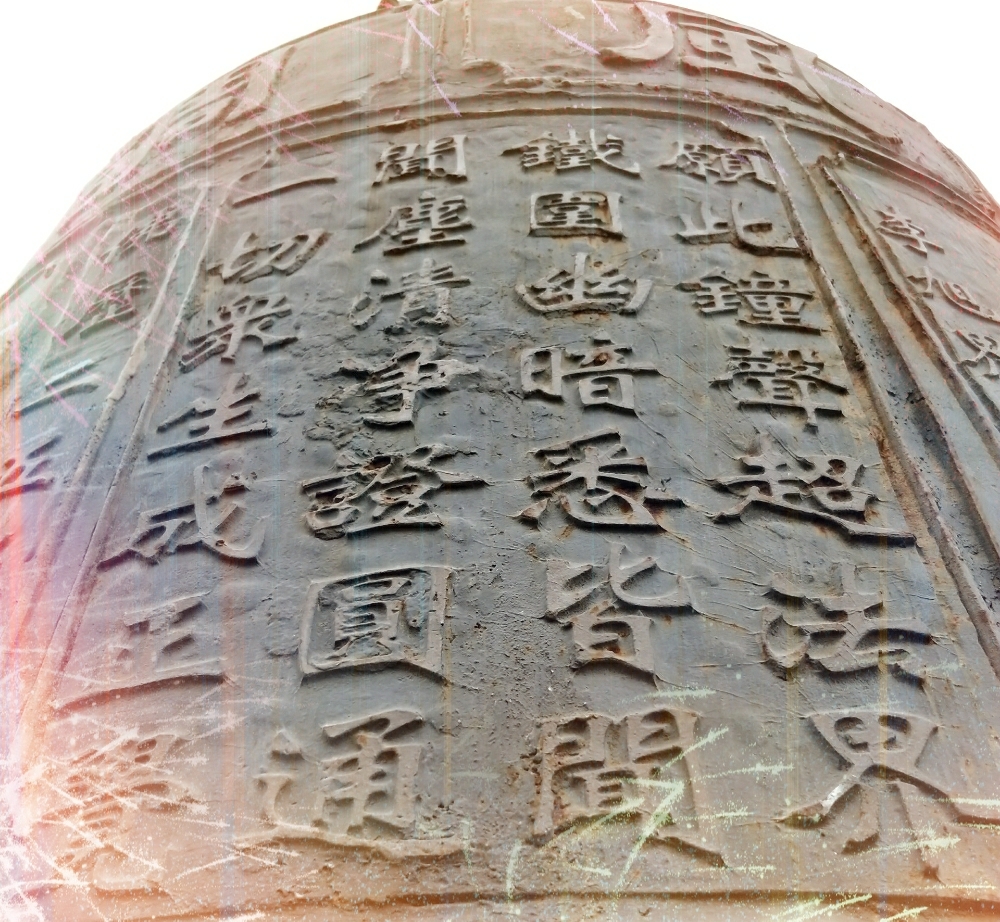 李旭
願此鐘聲超法界
鐵圍幽暗悉皆聞
聞塵清淨證圓通
一切衆生成正覺